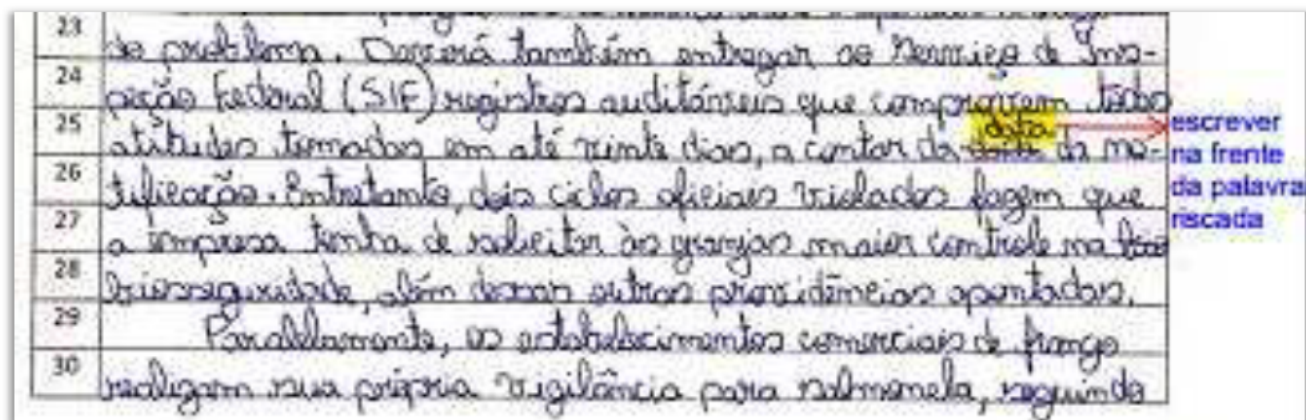 23 do problema. Deverá também entregar ao Serviço de Ins-
24 peção Federal (SIF) registros auditáveis que comprovem todas
data
25 atitudes tomadas em até vinte dias, a contar da da no-
26 tificação. Entretanto, dois ciclos oficiais violados fazem que
27 a empresa tenha de solicitar às granjas maior controle na
28 biosseguridade, além dessas outras providências apontadas.
29 Paralelamente, os estabelecimentos comerciais de frango
30 realizam sua própria vigilância para salmonela, seguindo
escrever
na frente
da palavra
riscada